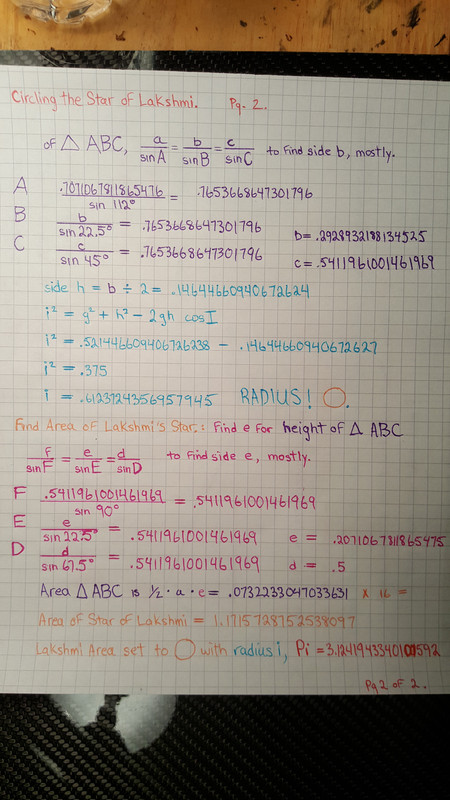 Circling the Star of Lakshmi. Pg. 2.
of △ ABC, a/sinA = b/sinB = c/sinC to find side b, mostly.
A .7071067811865476/sin 112° = .7653668647301796
B b/sin 22.5° = .7653668647301796 b= .2928932188134525
C c/sin 45° = .7653668647301796 c= .5411961001461969
side h = b ÷ 2 = .14644660940672624
i² = g² + h² - 2gh cosI
i² = .521446609406726238 - .14644660940672627
i² = .375
i = .6123724356957945 RADIUS! ◯.
Find Area of Lakshmi's Star: Find e for height of △ ABC
f/sinF = e/sinE = d/sinD to find side e, mostly.
F .5411961001461969/sin 90° = .5411961001461969
E e/sin 22.5° = .5411961001461969 e = .2071067811865475
D d/sin 67.5° = .5411961001461969 d = .5
Area △ABC is ½ · a · e = .0732233047033631 x 16 =
Area of Star of Lakshmi = 1.1715728752538097
Lakshmi Area set to ◯ with radius i, Pi = 3.1241943340100592
Pg 2 of 2.